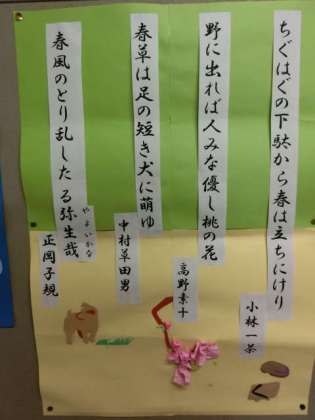 ちぐはぐの下駄から春は立ちにけり
小林一茶
野に出れば人みな優し桃の花
高野素十
春草は足の短き犬に萌ゆ
中村草田男
春風のとり乱したる弥生哉
やよいかな
正岡子規